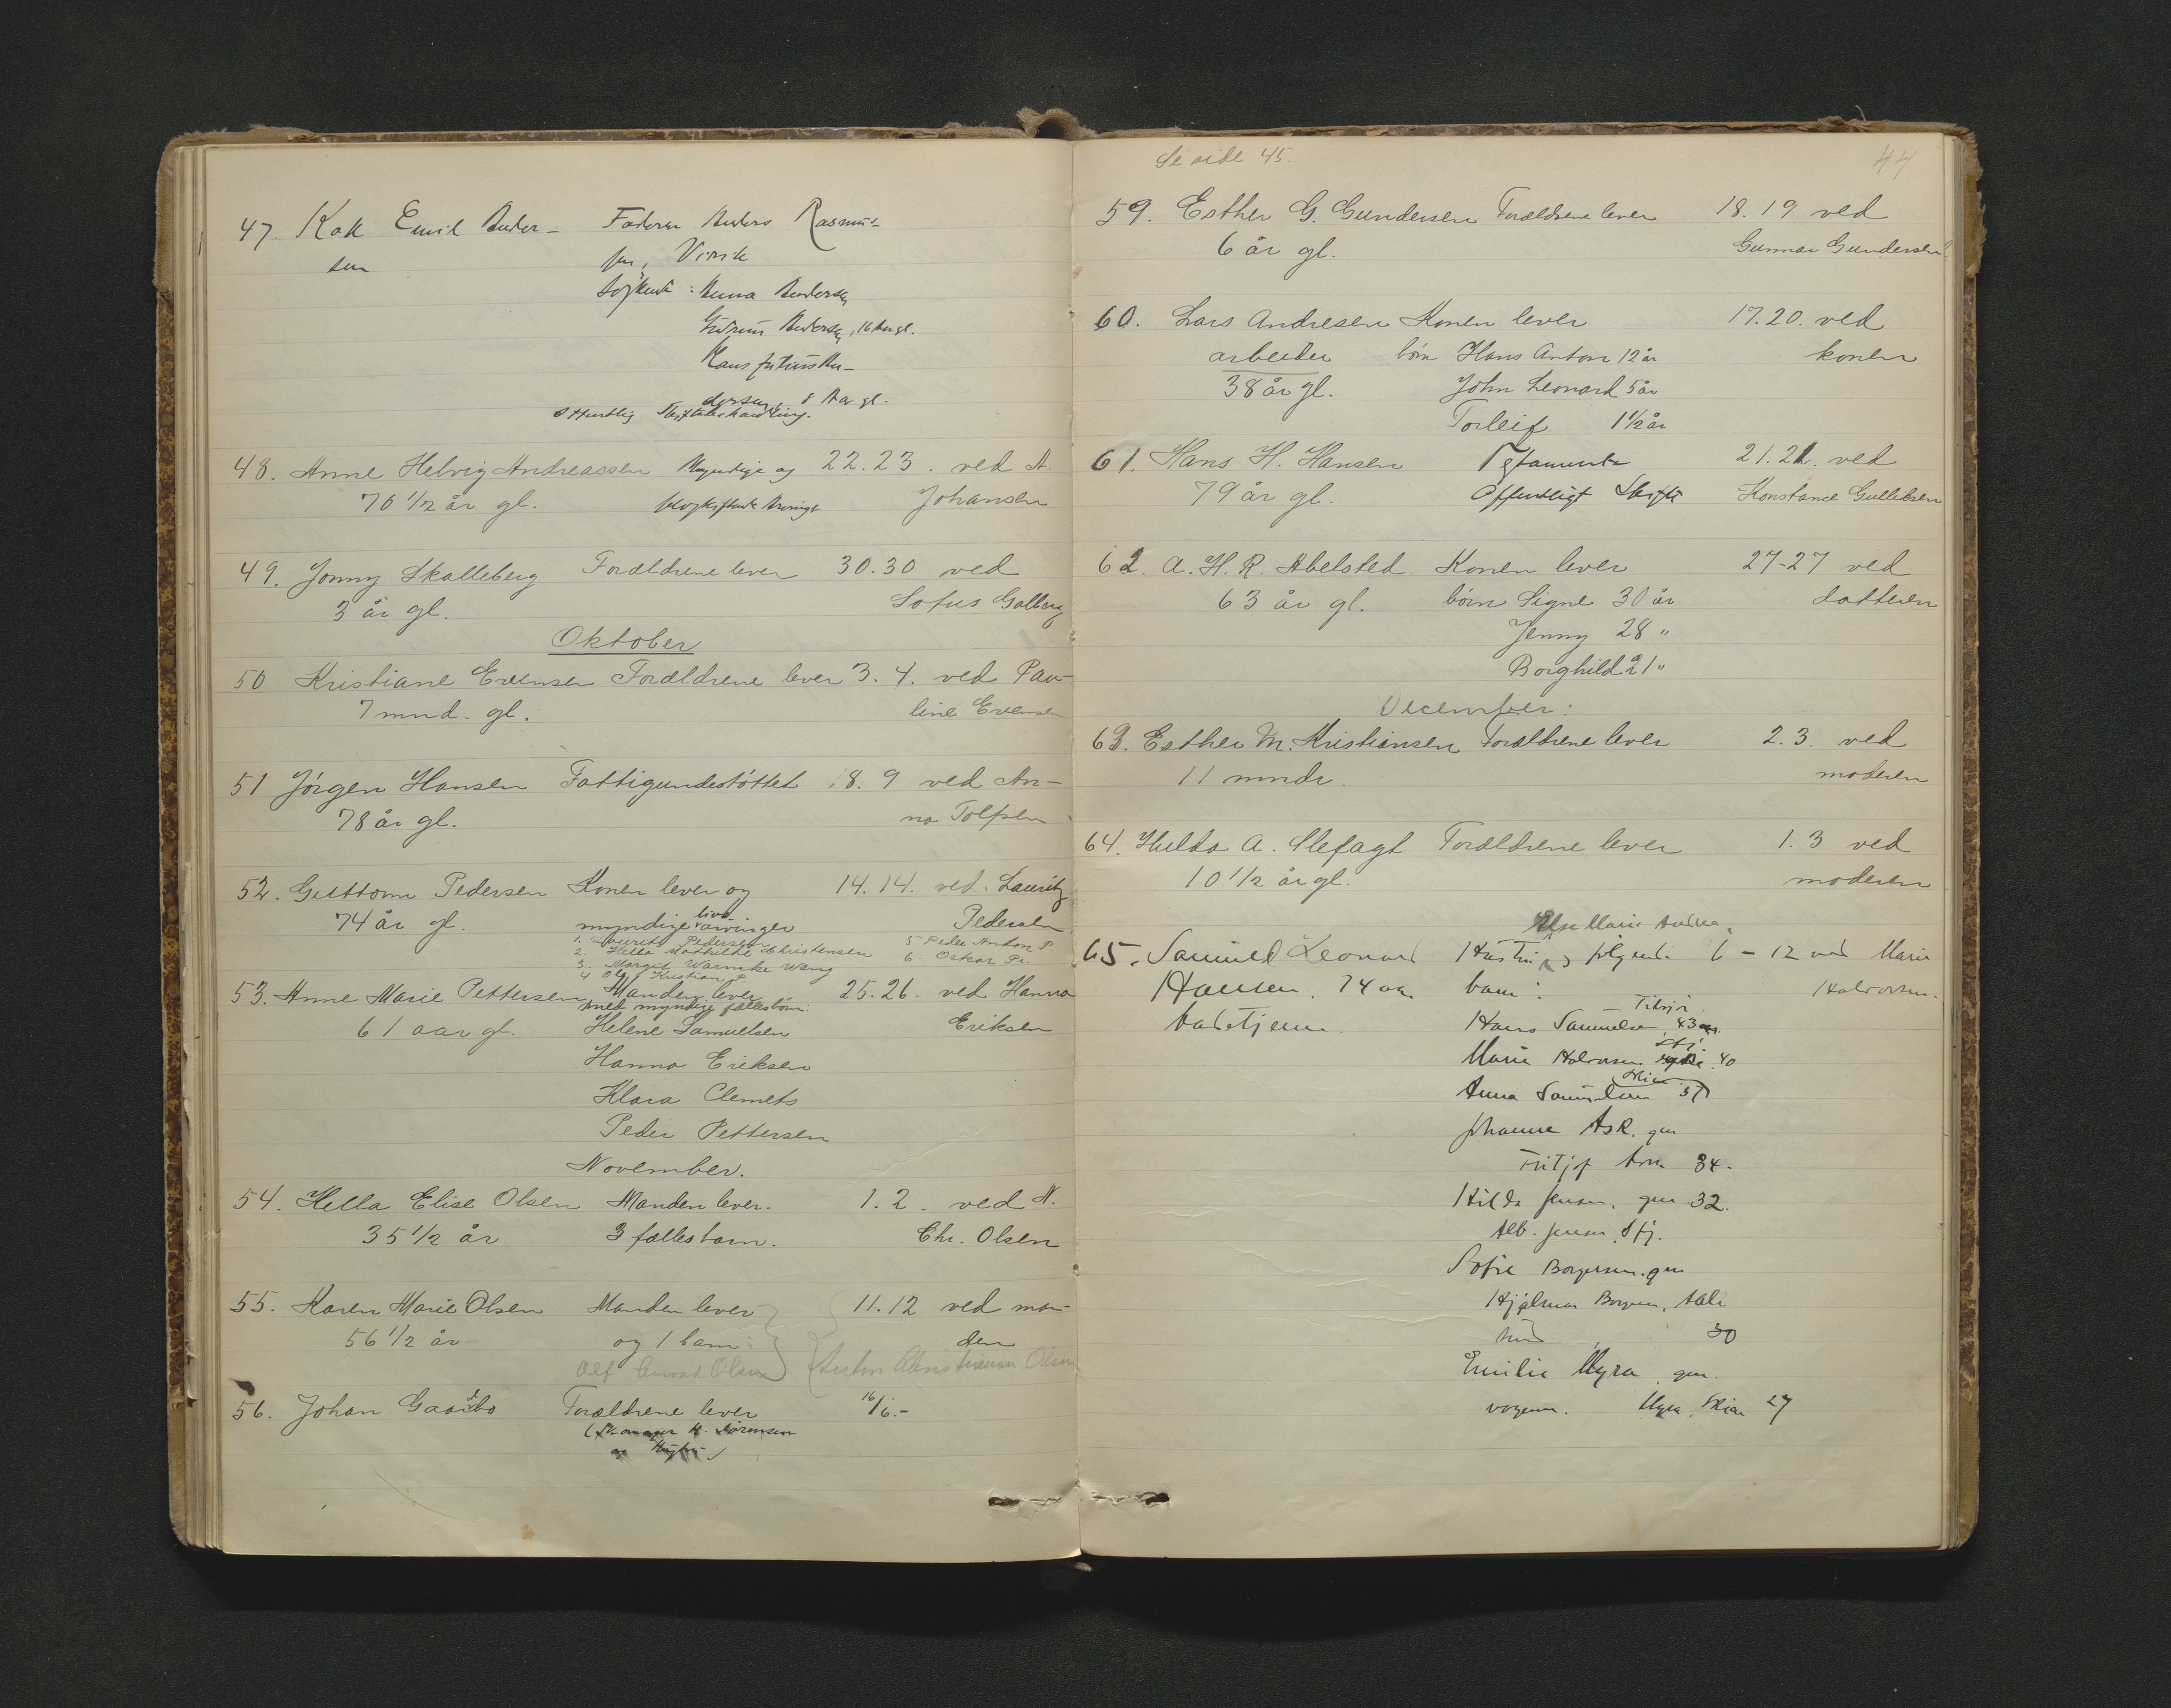 47. Emil Ander-
sen
Faderen Anders Rasmus-
sen,
Søskende: Anna Andersen
Andersen, 16 Aar gl.
Hans Julius An-
dersen, 8 Aar gl.
Offentlig Skiftebehandling.
48. Anne Helvig Andreassen Myndige og 22.23. ved A.
70 1/2 år gl. selvskiftende Arvinger Johansen
49. Jonny Skalleberg Forældrene lever 30.30 ved
3 år gl. Sofus Galberg
Oktober
50 Kristiane Evensen Forældrene lever 3. 4. ved Pau-
7 mnd. gl. line Evensen
51 Jörgen Hansen Fattigundestöttet 8. 9 ved An-
78 år gl. na Tolfsen
52. Guttorm Pedersen Konen lever og 14.14. ved. Lauritz
74 år gl. myndige livsarvinger Pedersen
1. Laurits Pedersen 5 Peder Anton P.
2. Hella Mathilde Christensen 6. Oskar Pe.
3. Margit Warncke Wang
4 Olaf Kristian P
53. Anne Marie Pettersen Manden lever 25.26. ved Hanna
med myndige fællesbörn:
61 aar gl. Helene Samuelsen Eriksen
Hanna Eriksen
Klara Clemets
Peder Pettersen
November.
54. Hella Elise Olsen Manden lever. 1. 2. ved A.
35 1/2 år 3 fællesbarn. Chr. Olsen
55. Karen Marie Olsen Manden lever 11.12 ved man-
56 1/2 år og 1 barn: den
Olsen Anton Christiansen Olsen
56. Johan Forældrene lever 16/6.-
Se side 45. 44
59. Esther G. Gundersen Forældrene lever 18. 19 ved
6 år gl. Gunnar Gundersen
60. Lars Andresen Konen lever 17.20. ved
arbeider börn Hans Anton 12 år konen
38 år gl. John Leonard 5 år
Torleif 1 1/2 år
61. Hans H. Hansen Testamente 21.21. ved
79 år gl. Offentligt Skifte Konstance Gulliksen
62. A. H. R. Abelsted Konen lever 27-27 ved
63 år gl. börn Signe 30 år datteren
Jenny 28 "
Borghild 21 "
December:
63. Esther M. Kristiansen Forældrene lever 2.3. ved
11 mndr. moderen
64. Hulda A. Forældrene lever 1. 3 ved
10 1/2 år gl. moderen
Else Marie Andrea
65. Samuel Leonard Hustru og følgende 6 - 12 ved Marie
Hansen, 74 aar barn: Halvorsen.
Hans Samuelsen, 43 aar.
Marie Halvorsen 40
Anna Samuelsen 37
Johanne Ask, gm
Fritjof Ask 34.
Hilda Jensen, gm 32.
Alb. Jensen, Stj.
Sofie Borgersen. gm
Hjalmar Borgersen,
30
Emilie Myra, gm.
Myra, Skien 27